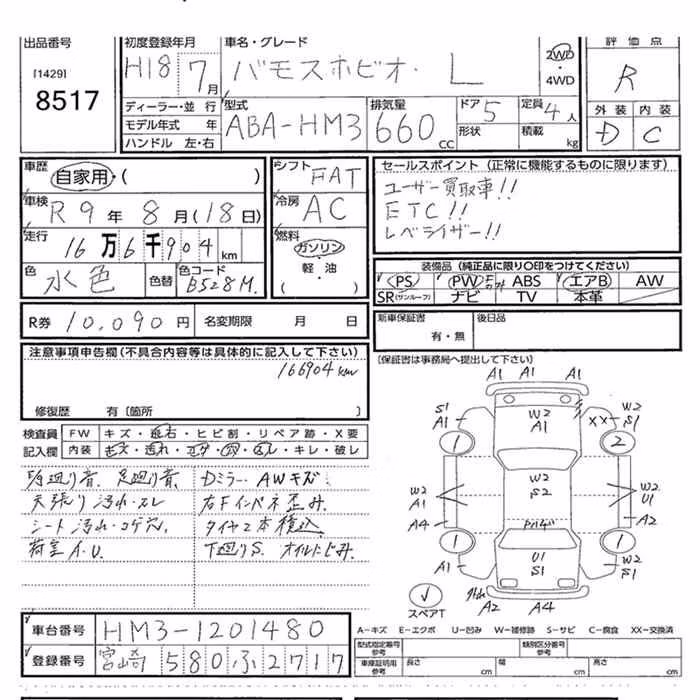 出品番号
[1429]
8517
初度登録年月
H18 7月
車名・グレード
バモスホビオ・ L
2WD
・
4WD
評価点
R
外装 内装
D C
ディーラー・並行
モデル年式 年
ハンドル 左・右
型式
ABA-HM3
排気量
660 CC
ドア 5
形状
定員 4人
積載 kg
車歴
自家用・( )
車検
R9年 8月(18日)
走行
16万6千904km
色
水色 色替
色コード
B528M.
シフト
FAT
冷房
AC
燃料
ガソリン
軽・油
( )
セールスポイント (正常に機能するものに限ります)
ユーザー買取車!!
ETC!!
レベライザー!!
装備品 (純正品に限り〇印をつけてください)
PS PW ABS エアB AW
SR(サンルーフ) ナビ TV 本革
R券 10,090円
名変期限 月 日
新車保証書
有・無
後日品
[保証書は事務局へ提出して下さい]
注意事項申告欄(不具合内容等は具体的に記入して下さい)
166904km
修復歴 有〔箇所 〕
検査員
記入欄
FW キズ・飛石・ヒビ割・リペア跡・X要
内装 キズ・汚れ・コゲ・穴・スレ・キレ・破レ
足廻り音
天張り汚れ・スレ
シート汚れ・コゲ穴.
荷室A.U.
Dミラー. AWキズ
右Fインパネ歪み.
タイヤ2本積込
下廻りS. オイルにじみ.
A1 A1 A1
S1
A1
W2
A1
XX
W2
S1
1
2
W2
S2
W2
A1
A4
W2
U1
A2
1
1
U1
S1
A1
W2
S1
A2 A4
スペアT
A-キズ E-エクボ U-凹み W-補修跡 S-サビ C-腐食 XX-交換済
車台番号
HM3-1201480
登録番号
宮崎 580 ふ 2717
型式指定番号
参考
類別区分番号
参考
車庫証明用
参考
長さ cm
幅 cm
高さ cm